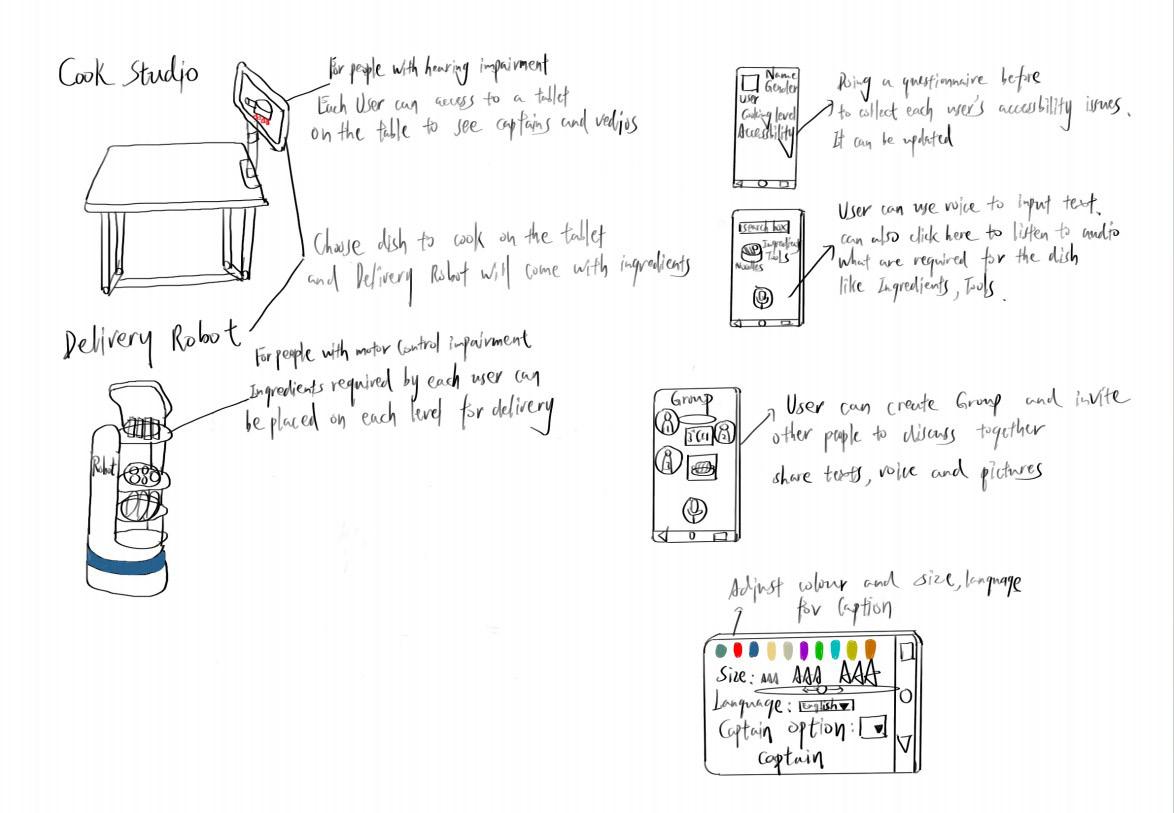 Cook Studio
For people with hearing impairment
Each User can access to a tablet
on the table to see captains and vedios
Choose dish to cook on the tablet
and Delivery Robot will come with ingredients
Delivery Robot
For people with motor control impairment
Ingredients required by each user can
be placed on each level for delivery
Robot
Name
Gender
User
Cooking level
Accessbility
Doing a questionnaire before
to collect each user's accessbility issues.
It can be updated
search box
Ingredient
Tools
Noodles
User can use voice to input text.
can also click here to listen to audio
what are required for the dish
like Ingredients, Tools.
Group
User can create Group and invite
other people to discuss together
share texts, voice and pictures
Adjust colour and size, language
for Caption
Size: AAA AAA AAA
Language: English
Captain option:
Captain